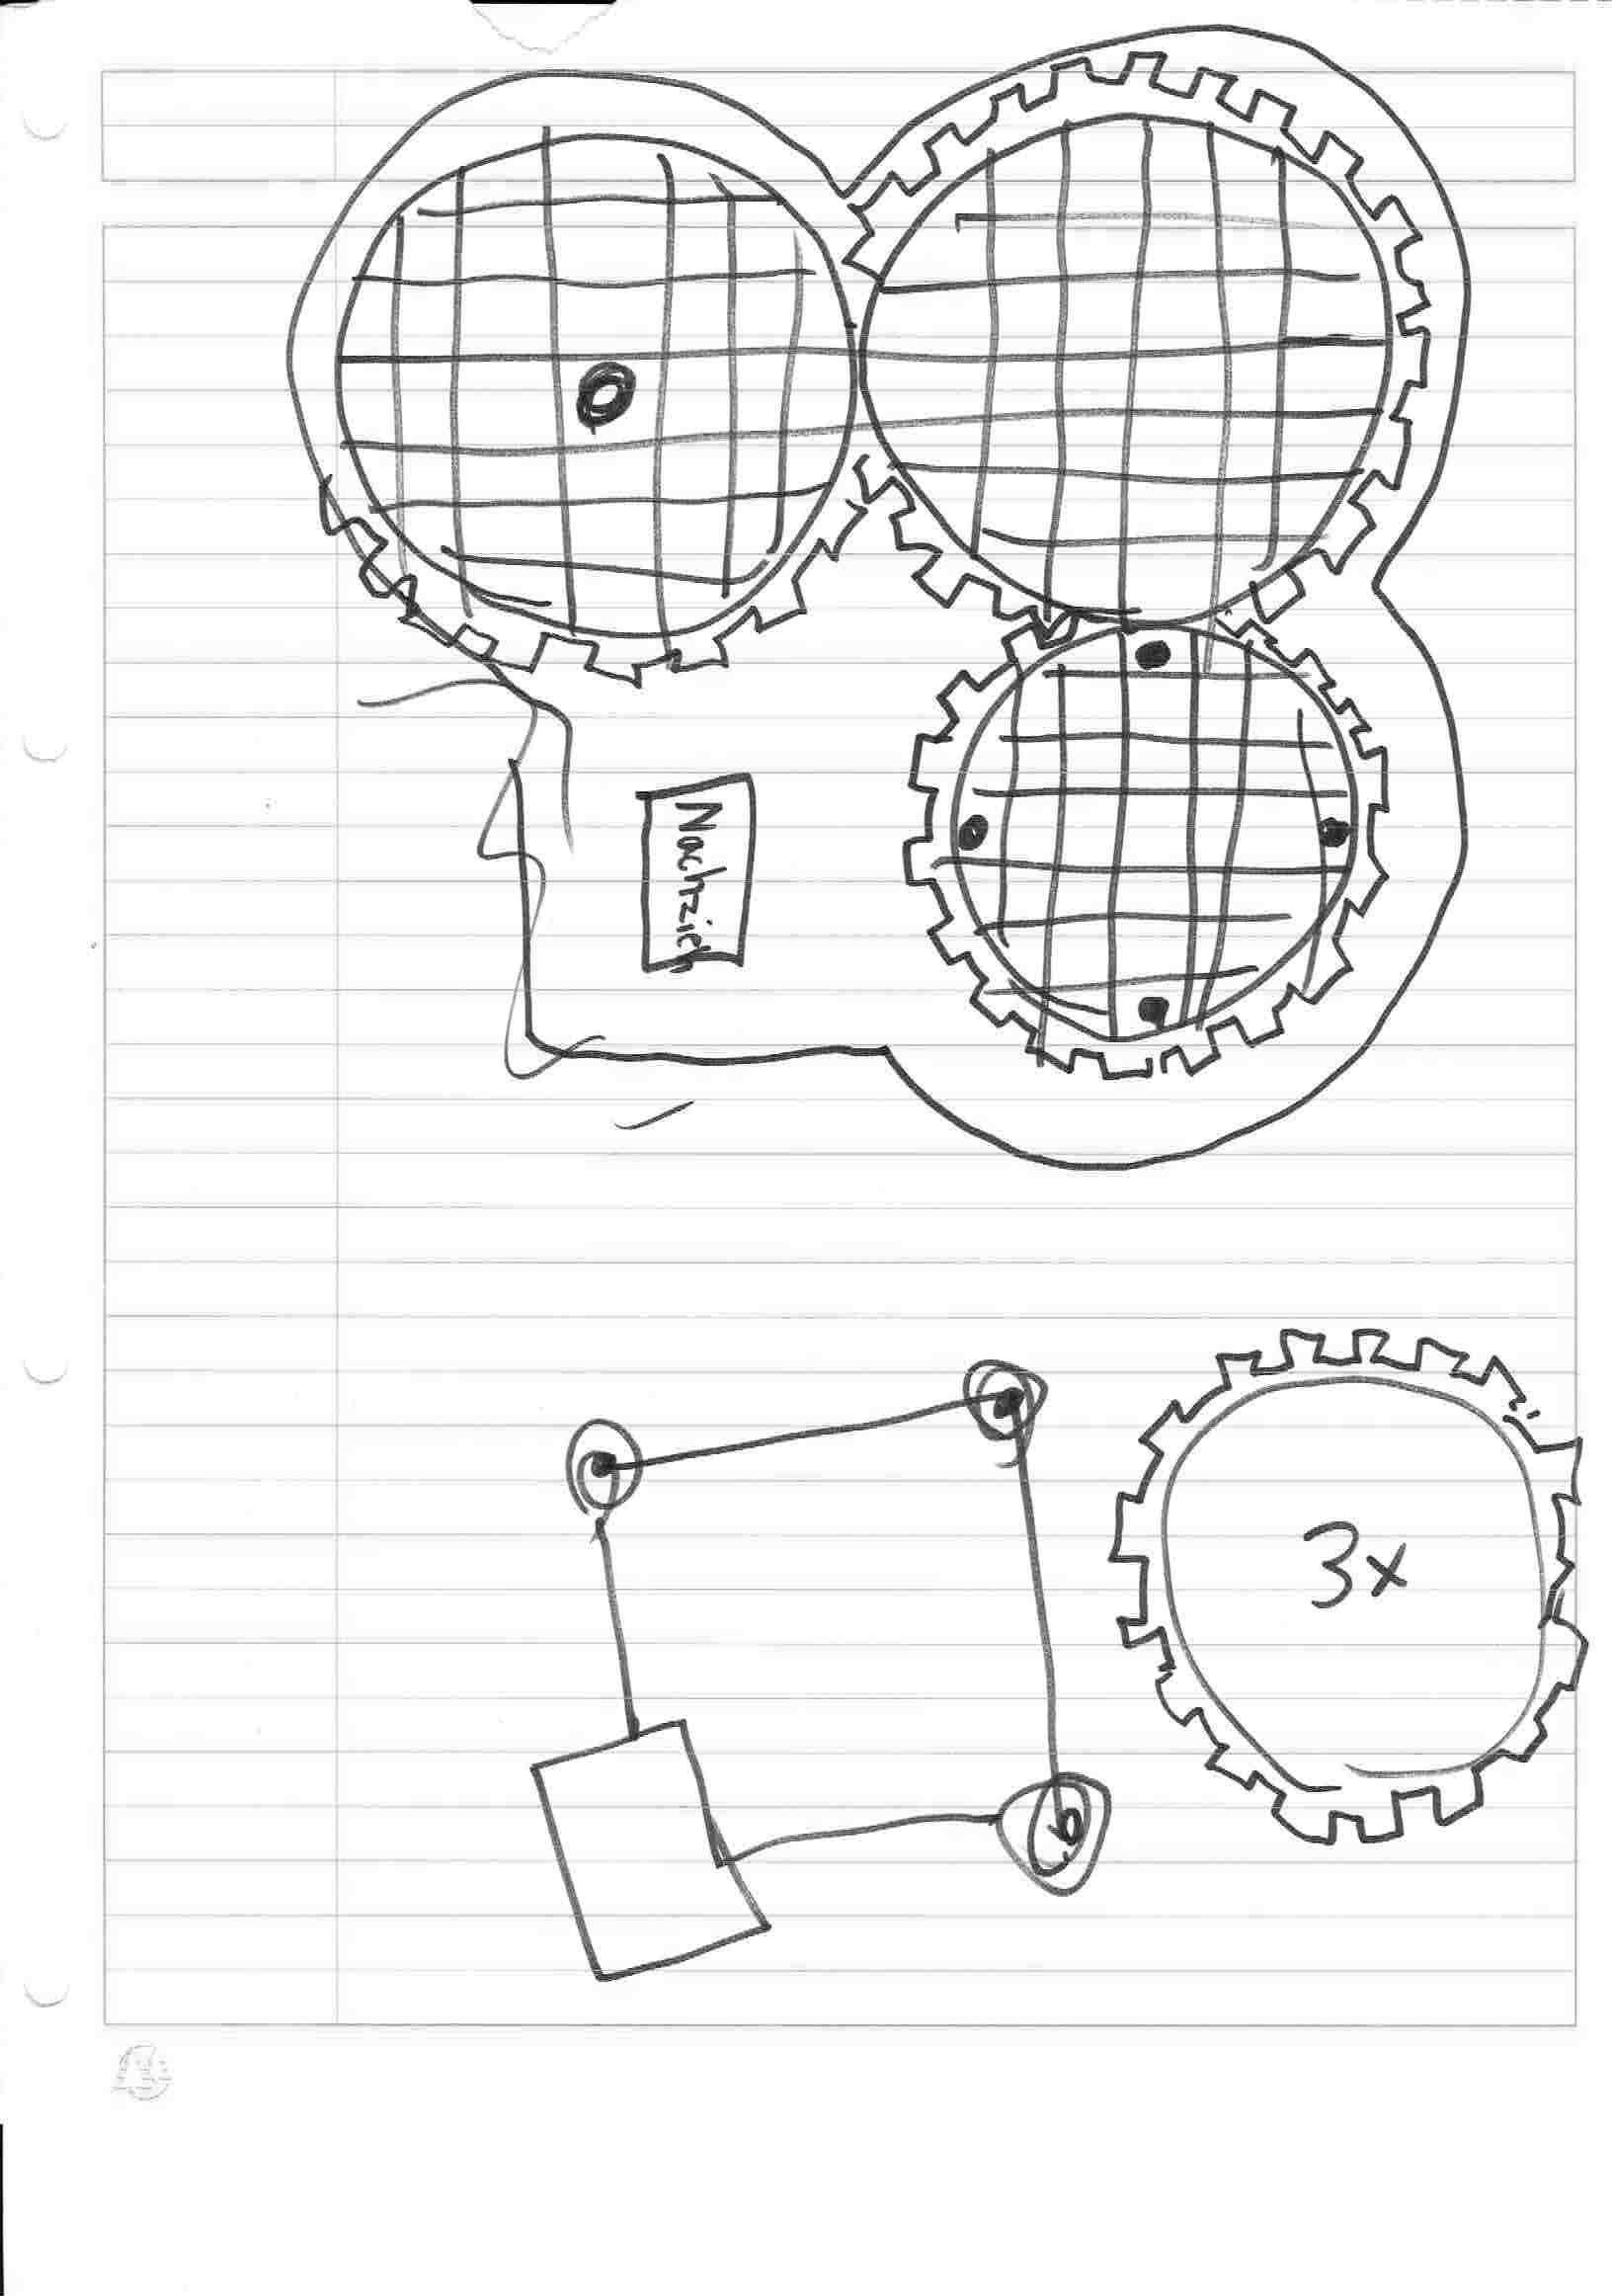 Nachzieh
3x